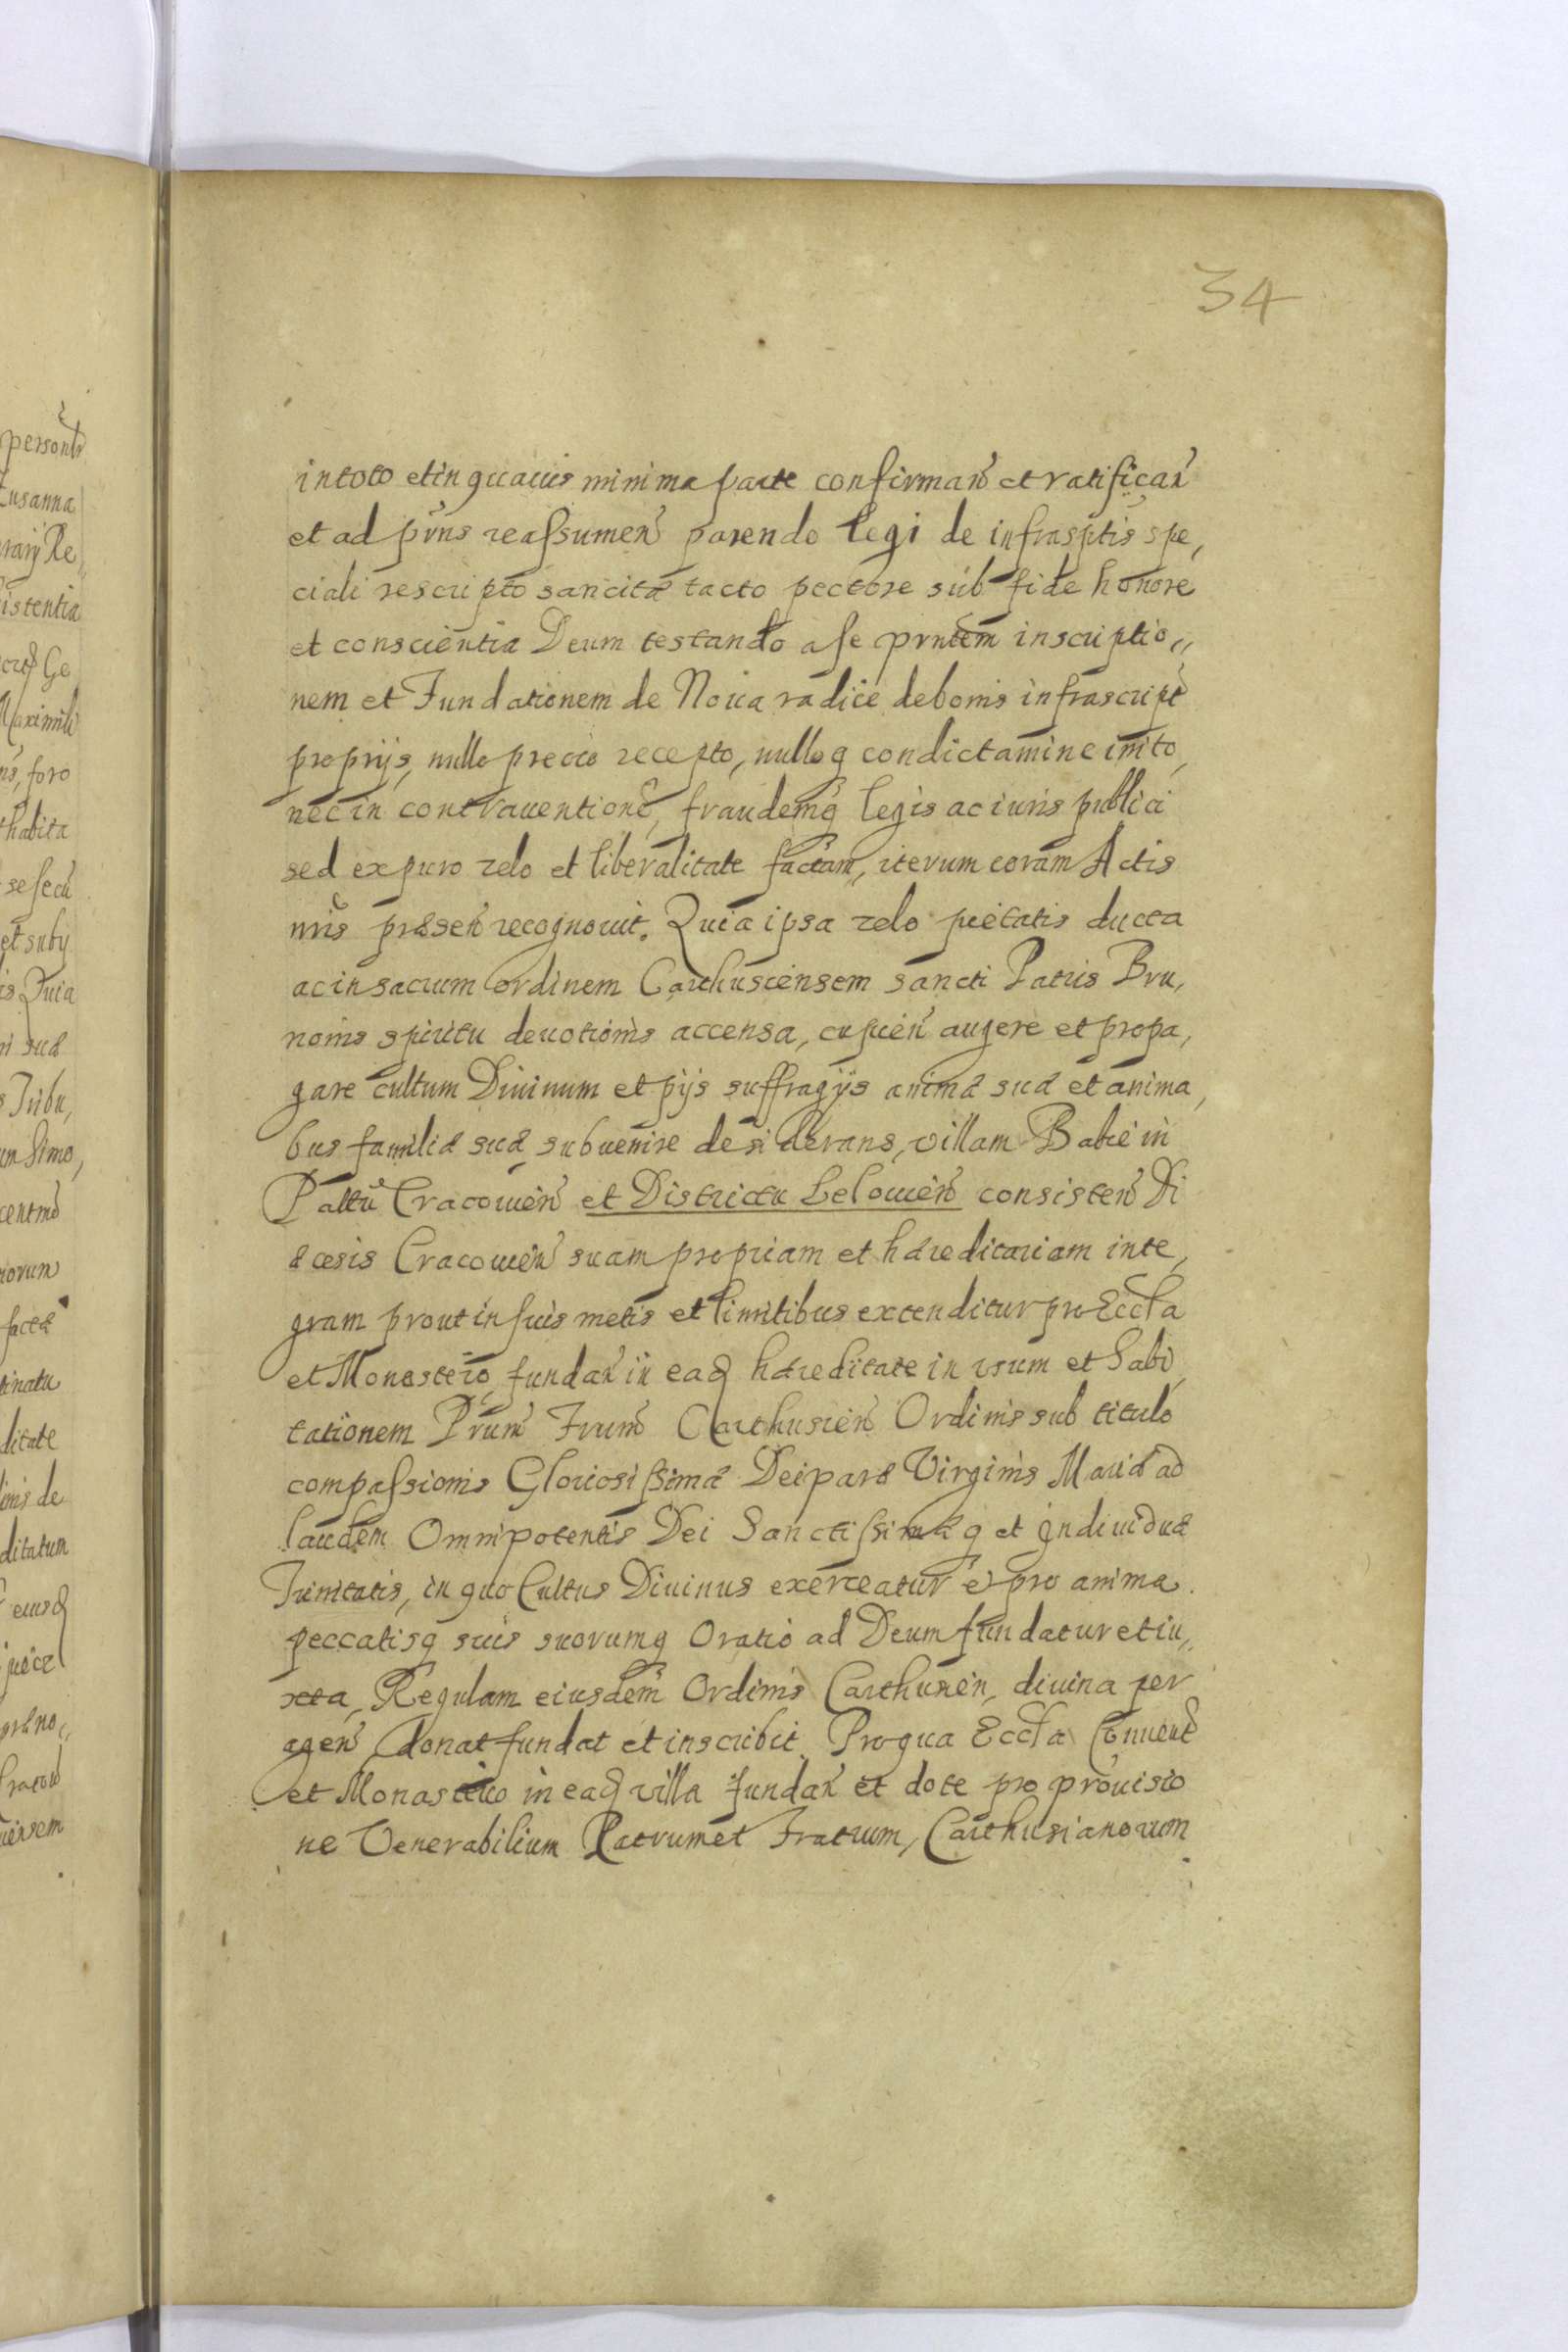 34
in toto et in quavis minima parte confirmań et ratificań
et ad pñns reassumeń parendo legi de infrasptis spe,
ciali rescripto sancitæ tacto pectore sub fide honore
et conscientia Deum testando a se prntem inscriptio„
nem et Fundationem de Noua radice de bonis infrascript
proprijs, nullo precio recepto, nulloq condictamine inito,
nec in contrauentione, fraudemq legis ac iuris publici
sed ex puro zelo et liberalitate factam, iterum coram Actis
nris præseń recognouit. Quia ipsa zelo pietatis ducta
ac in sacrum ordinem Carthusiensem sancti Patris Bru,
nonis spiritu deuotionis accensa, cupień augere et propa,
gare cultum Diuinum et pijs suffragijs animæ suæ et anima,
bus familiæ suæ subuenire desiderans, villam Bakie in
Paltu Cracouień et Districtu Lelouień consisteń Di
æcesis Cracouień suam propriam et hæreditariam inte,
gram prout in suis metis et limitibus extenditur pro Eccla
et Monastero fundań in eaq hæreditate in vsum et habi,
tationem Prum Frum Carthusień Ordinis sub titulo
compassionis Gloriosissimæ Deiparæ Virginis Mariæ ad
laudem Omnipotentis Dei Sanctissimæq et Indiuiduæ
Trinitatis, in quo Cultus Diuinus exerceatur et pro anima
peccatisq suis suorumq Oratio ad Deum fundatur et iu„
xta, Regulam eiusdem Ordinis Carthusień, diuina per
ageń donat fundat et inscribit. Pro qua Eccla Conuent
et Monasterio in eaq villa fundań et dote pro prouisio
ne Venerabilium Patrum et Fratrum, Carthusianorum